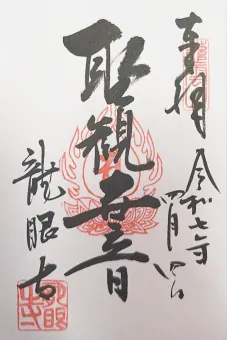 奉拝
令和七年
四月四日
聖観音
龍眼寺